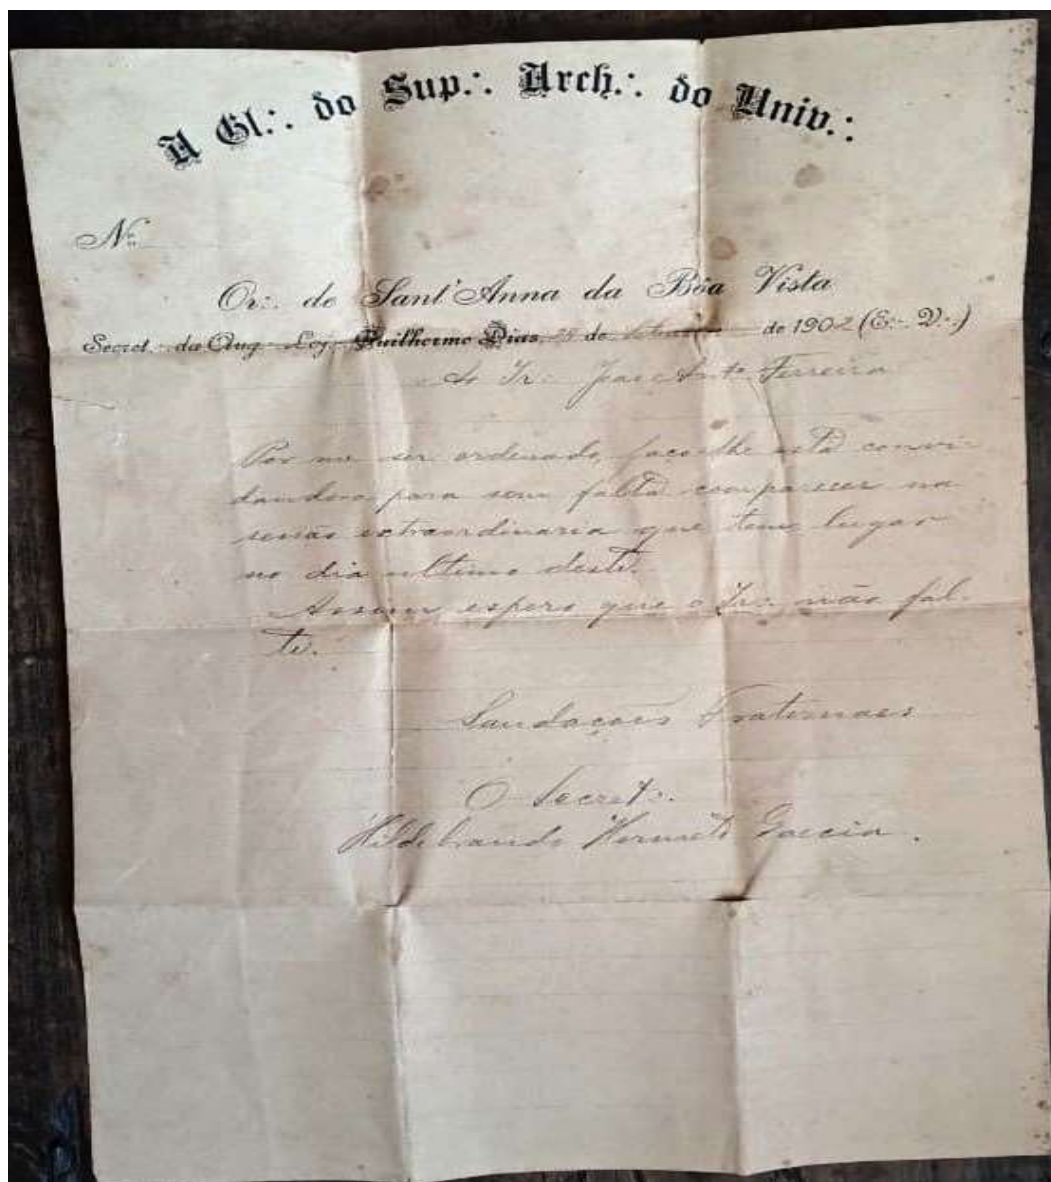 A Gl∴ do Sup∴ Arch∴ do Univ∴
No
Or∴ de Sant'Anna da Bôa Vista
Secret∴ da Aug∴ Loj∴ Guilherme Dias, de de 1902 (E∴ V∴)
Ao Ir∴ Ferreira
Por me ser ordenado, faço-lhe esta convi-
dando-o para sem falta comparecer na
sessão extraordinaria que tem lugar
no dia ultimo deste.
Assim espero que o Ir∴ não fal-
te.
Saudações Fraternaes
O Secret∴
Hildebrando Garcia.